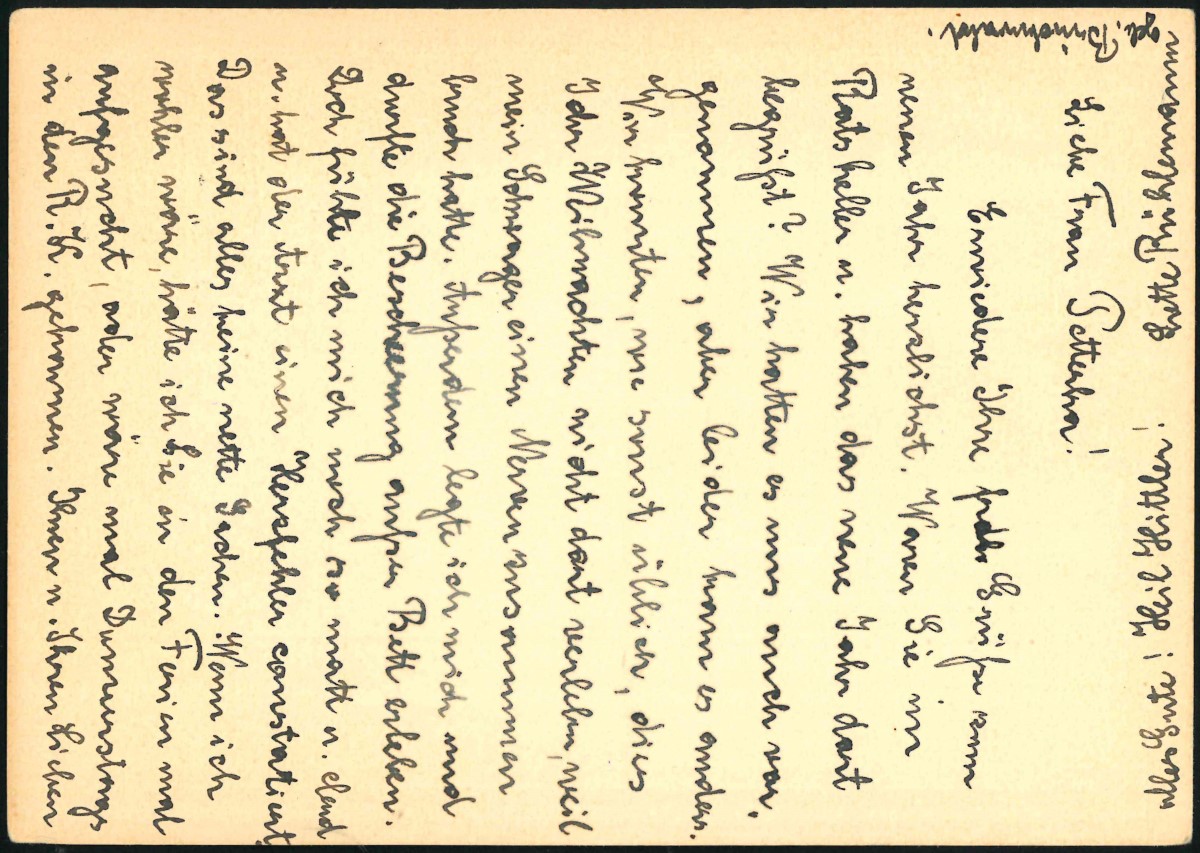 Liebe Frau Petterka!
Erwiedere Ihre frdl. Grüße zum
neuen Jahr herzlichst. Waren Sie im
Ratskeller u. haben das neue Jahr dort
begrüßt? Wir hatten es uns auch vor-
genommen, aber leider kam es anders.
Wir konnten, wie sonst üblich, dies
Jahr Weihnachten nicht dort verleben, weil
mein Schwager einen Nervenzusammen
bruch hatte. Außerdem legte ich mich und
durfte die Bescheerung auf'm Bett erleben.
Doch fühlte ich mich noch so matt u. elend
u. hat der Arzt einen Herzfehler constatiert.
Das sind alles keine nette Sachen. Wenn ich
wohler wäre, hätte ich Sie in den Ferien mal
aufgesucht, oder wäre mal Donnerstags
in den R.K. gekommen. Ihnen u. Ihren Lieben
alles Gute! Heil Hittler! Grette Rühlemann
geb.